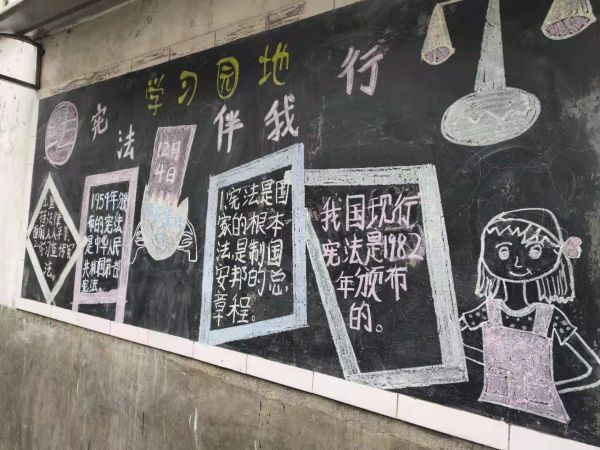 学习园地
宪法伴我行
12月
4日
1954年颁
布的宪法
是中华人民
共和国第一部
宪法。
1.宪法是国
家的根本
法是制国
安邦的总
章程。
我国现行
宪法是1982
年颁布
的。